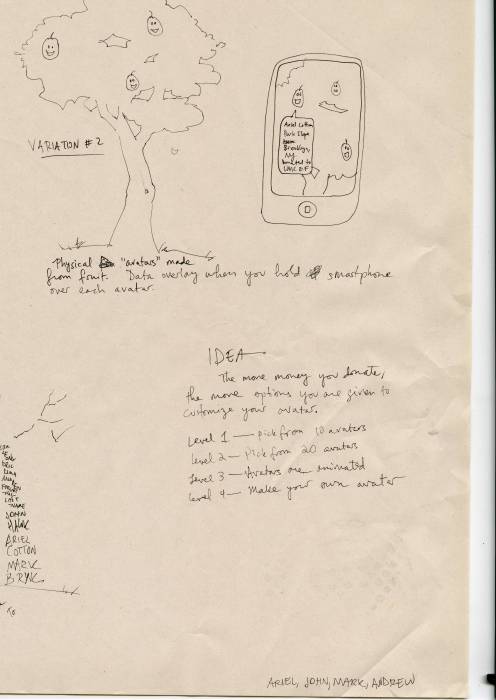 VARIATION # 2
Ariel Cotton
Park Slope
Brooklyn,
NY
donated to
UNICEF
Physical "avatars" made
from fruit. Data overlay when you hold smartphone
over each avatar.
IDEA
The more money you donate,
the more options you are given to
customize your avatar.
Level 1 — Pick from 10 avatars
Level 2 — Pick from 20 avatars
Level 3 — Avatars are animated
Level 4 — Make your own avatar
NAME
JOHN
HAWK
ARIEL
COTTON
MARK
ARIEL, JOHN, MARK, ANDREW